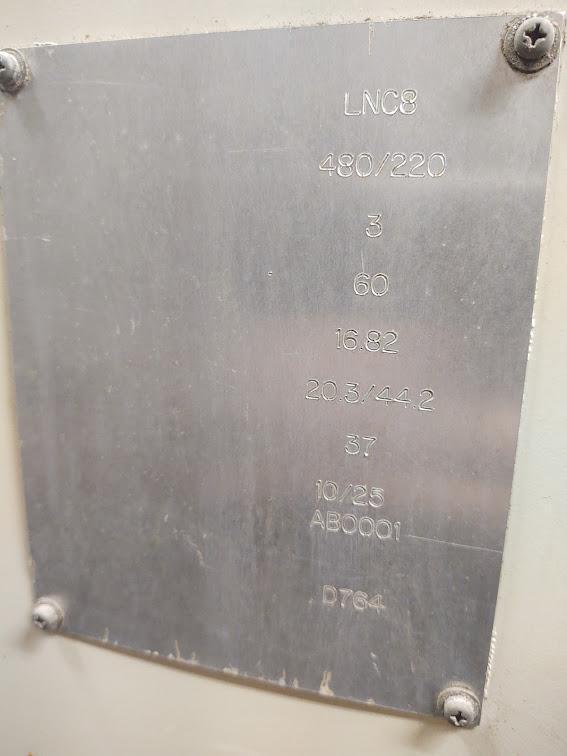 LNC8
480/220
3
60
16.82
20.3/44.2
37
10/25
AB0001
D764